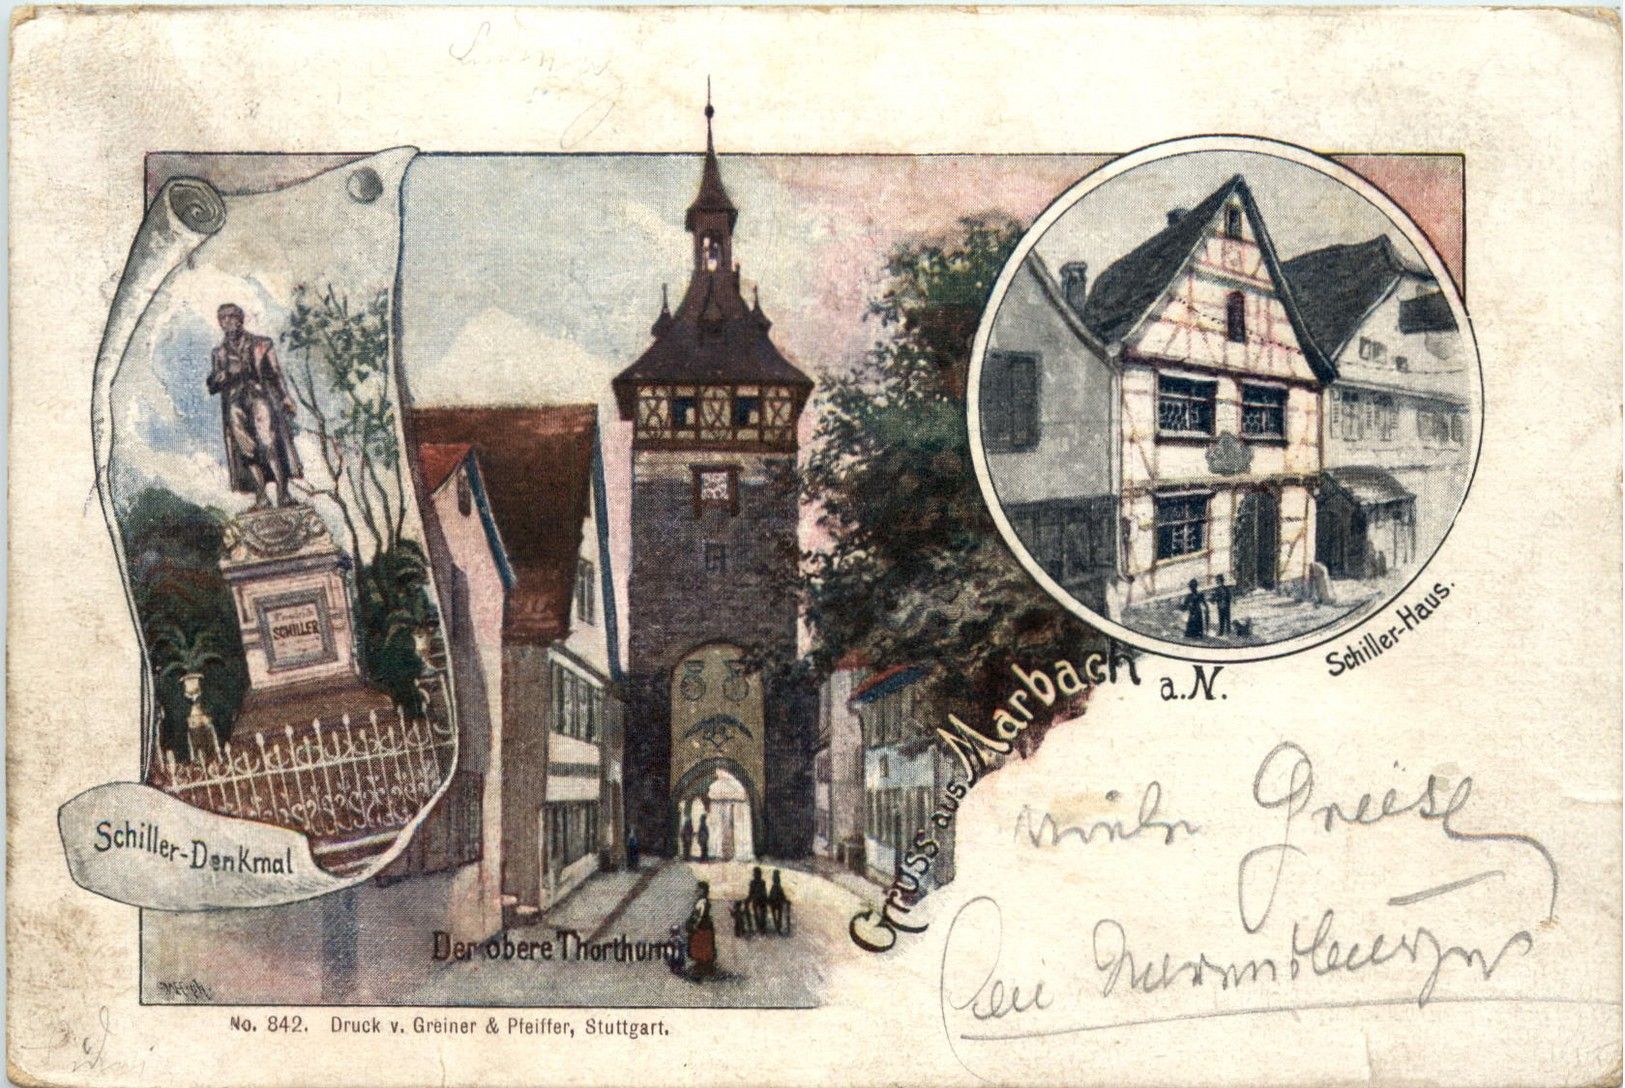 Friedrich
SCHILLER
Schiller-Denkmal
Der obere Thorthurm
Gruss aus Marbach a.N.
Schiller-Haus.
viele Grüße
No. 842. Druck v. Greiner & Pfeiffer, Stuttgart.